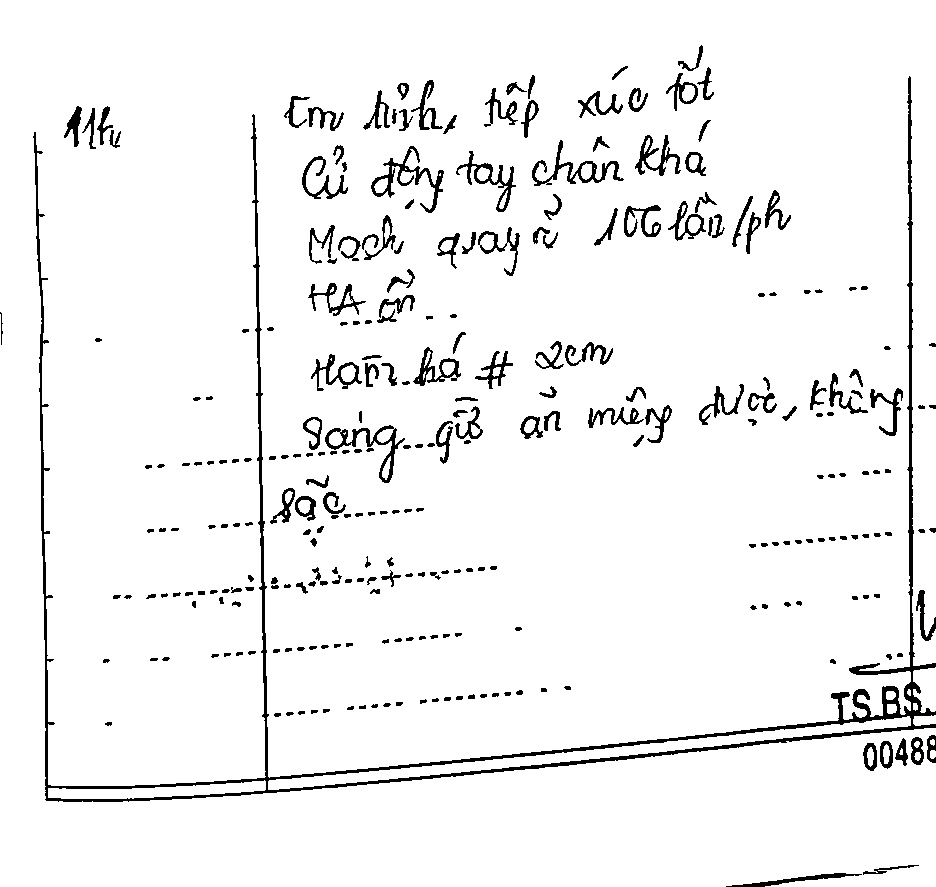 11h
Em tỉnh, tiếp xúc tốt
Cử động tay chân khá
Mạch quay rõ 106 lần/ph
HA ổn
Ham há # 2cm
Sáng giờ ăn miệng được, không
sặc
TS.BS.
00488